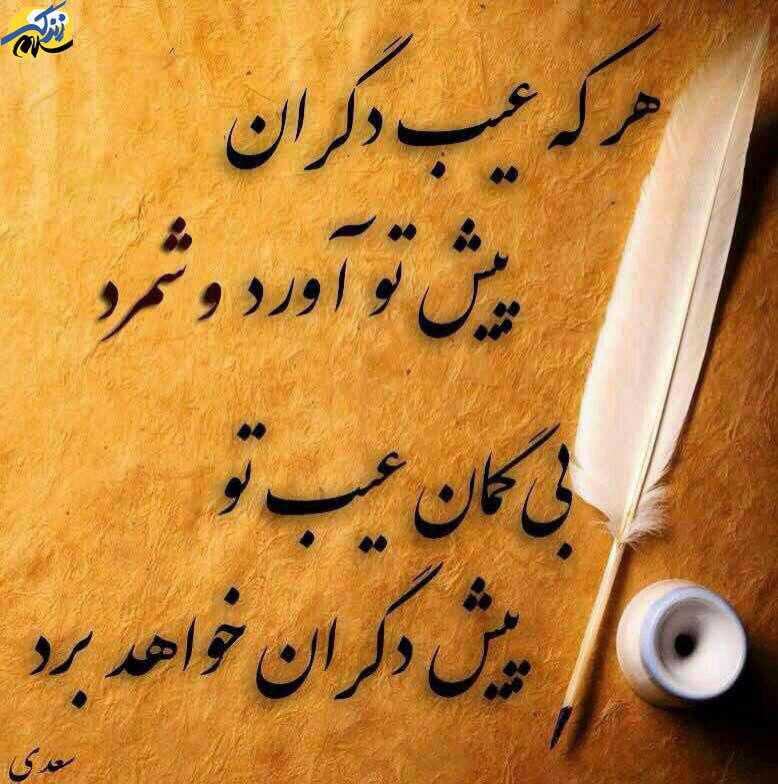 زندگی
سلام
هر که عیب دگران
پیش تو آورد و شمرد
بی گمان عیب تو
پیش دگران خواهد برد
سعدی